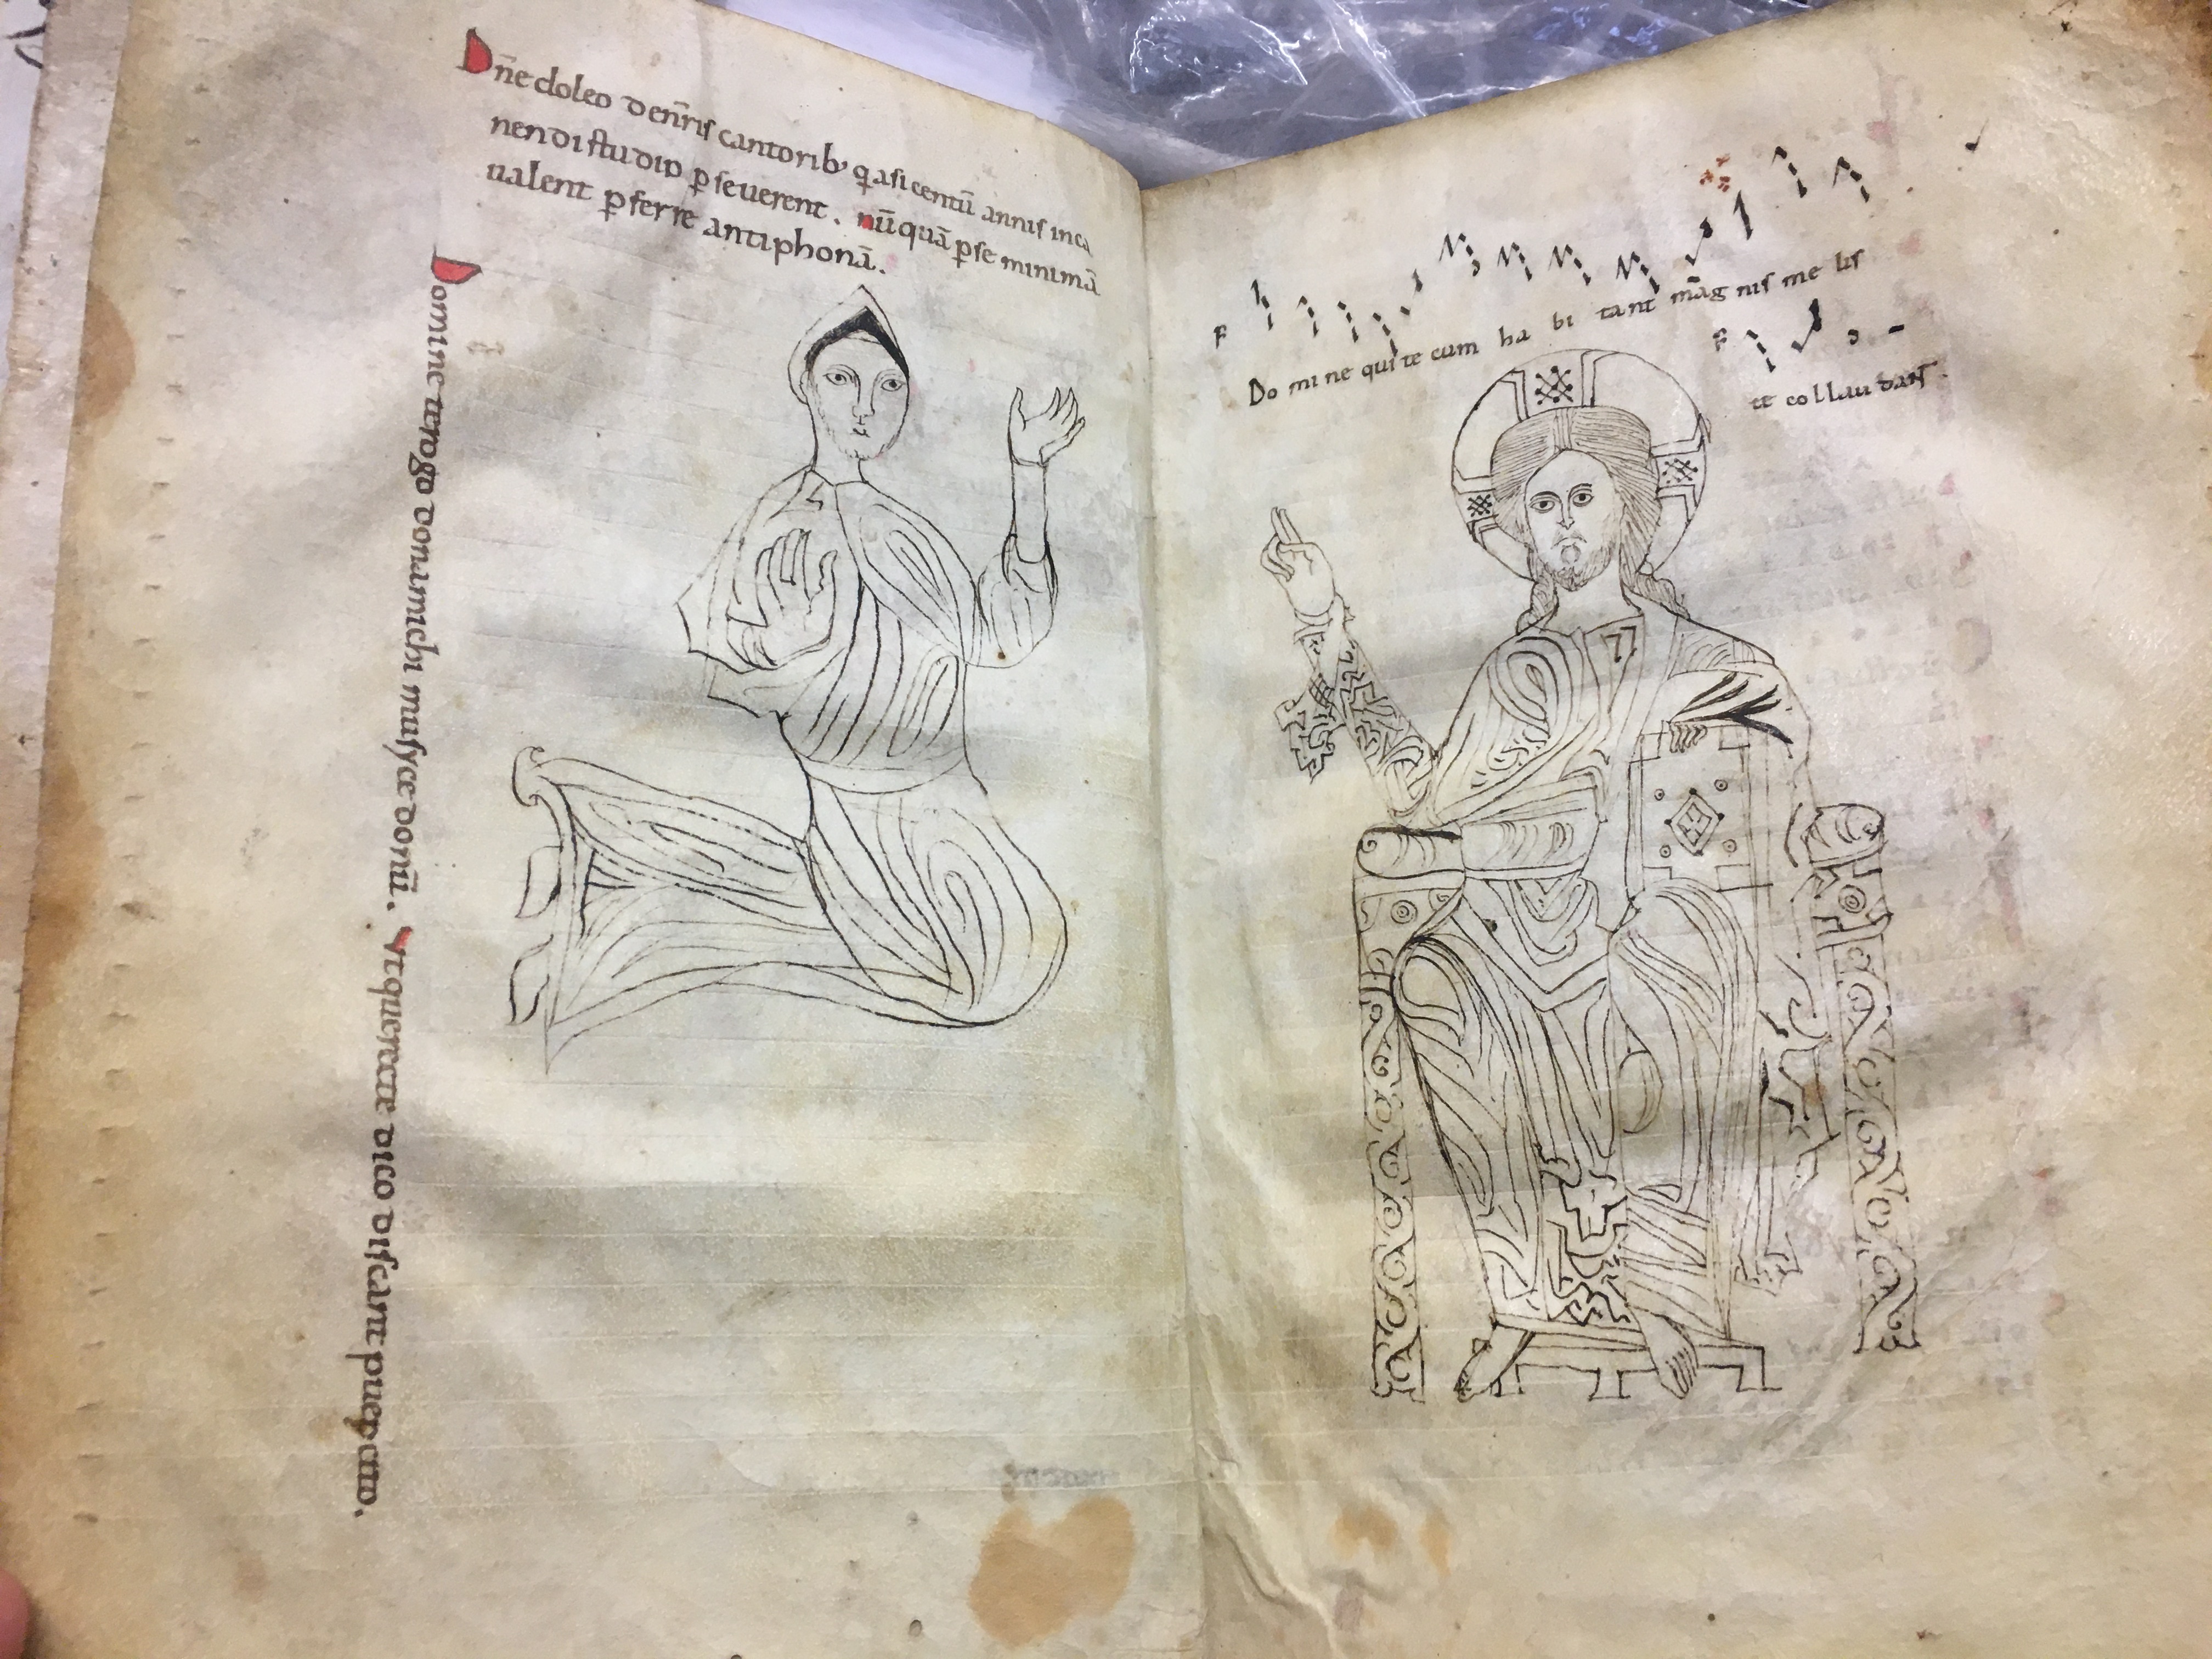 Dn̄e doleo den̄ris cantorib; q̄ asi centū annis inca
nendi studio p̱seuerent. nūquā p̱se minimā
ualent p̱ferre antiphonā.
Domine te rogo dona michi musyce donū. Vt querere dico discant puer cito.
Do mi ne qui te cum ha bi tant māg nis me lis
te col lau dant.